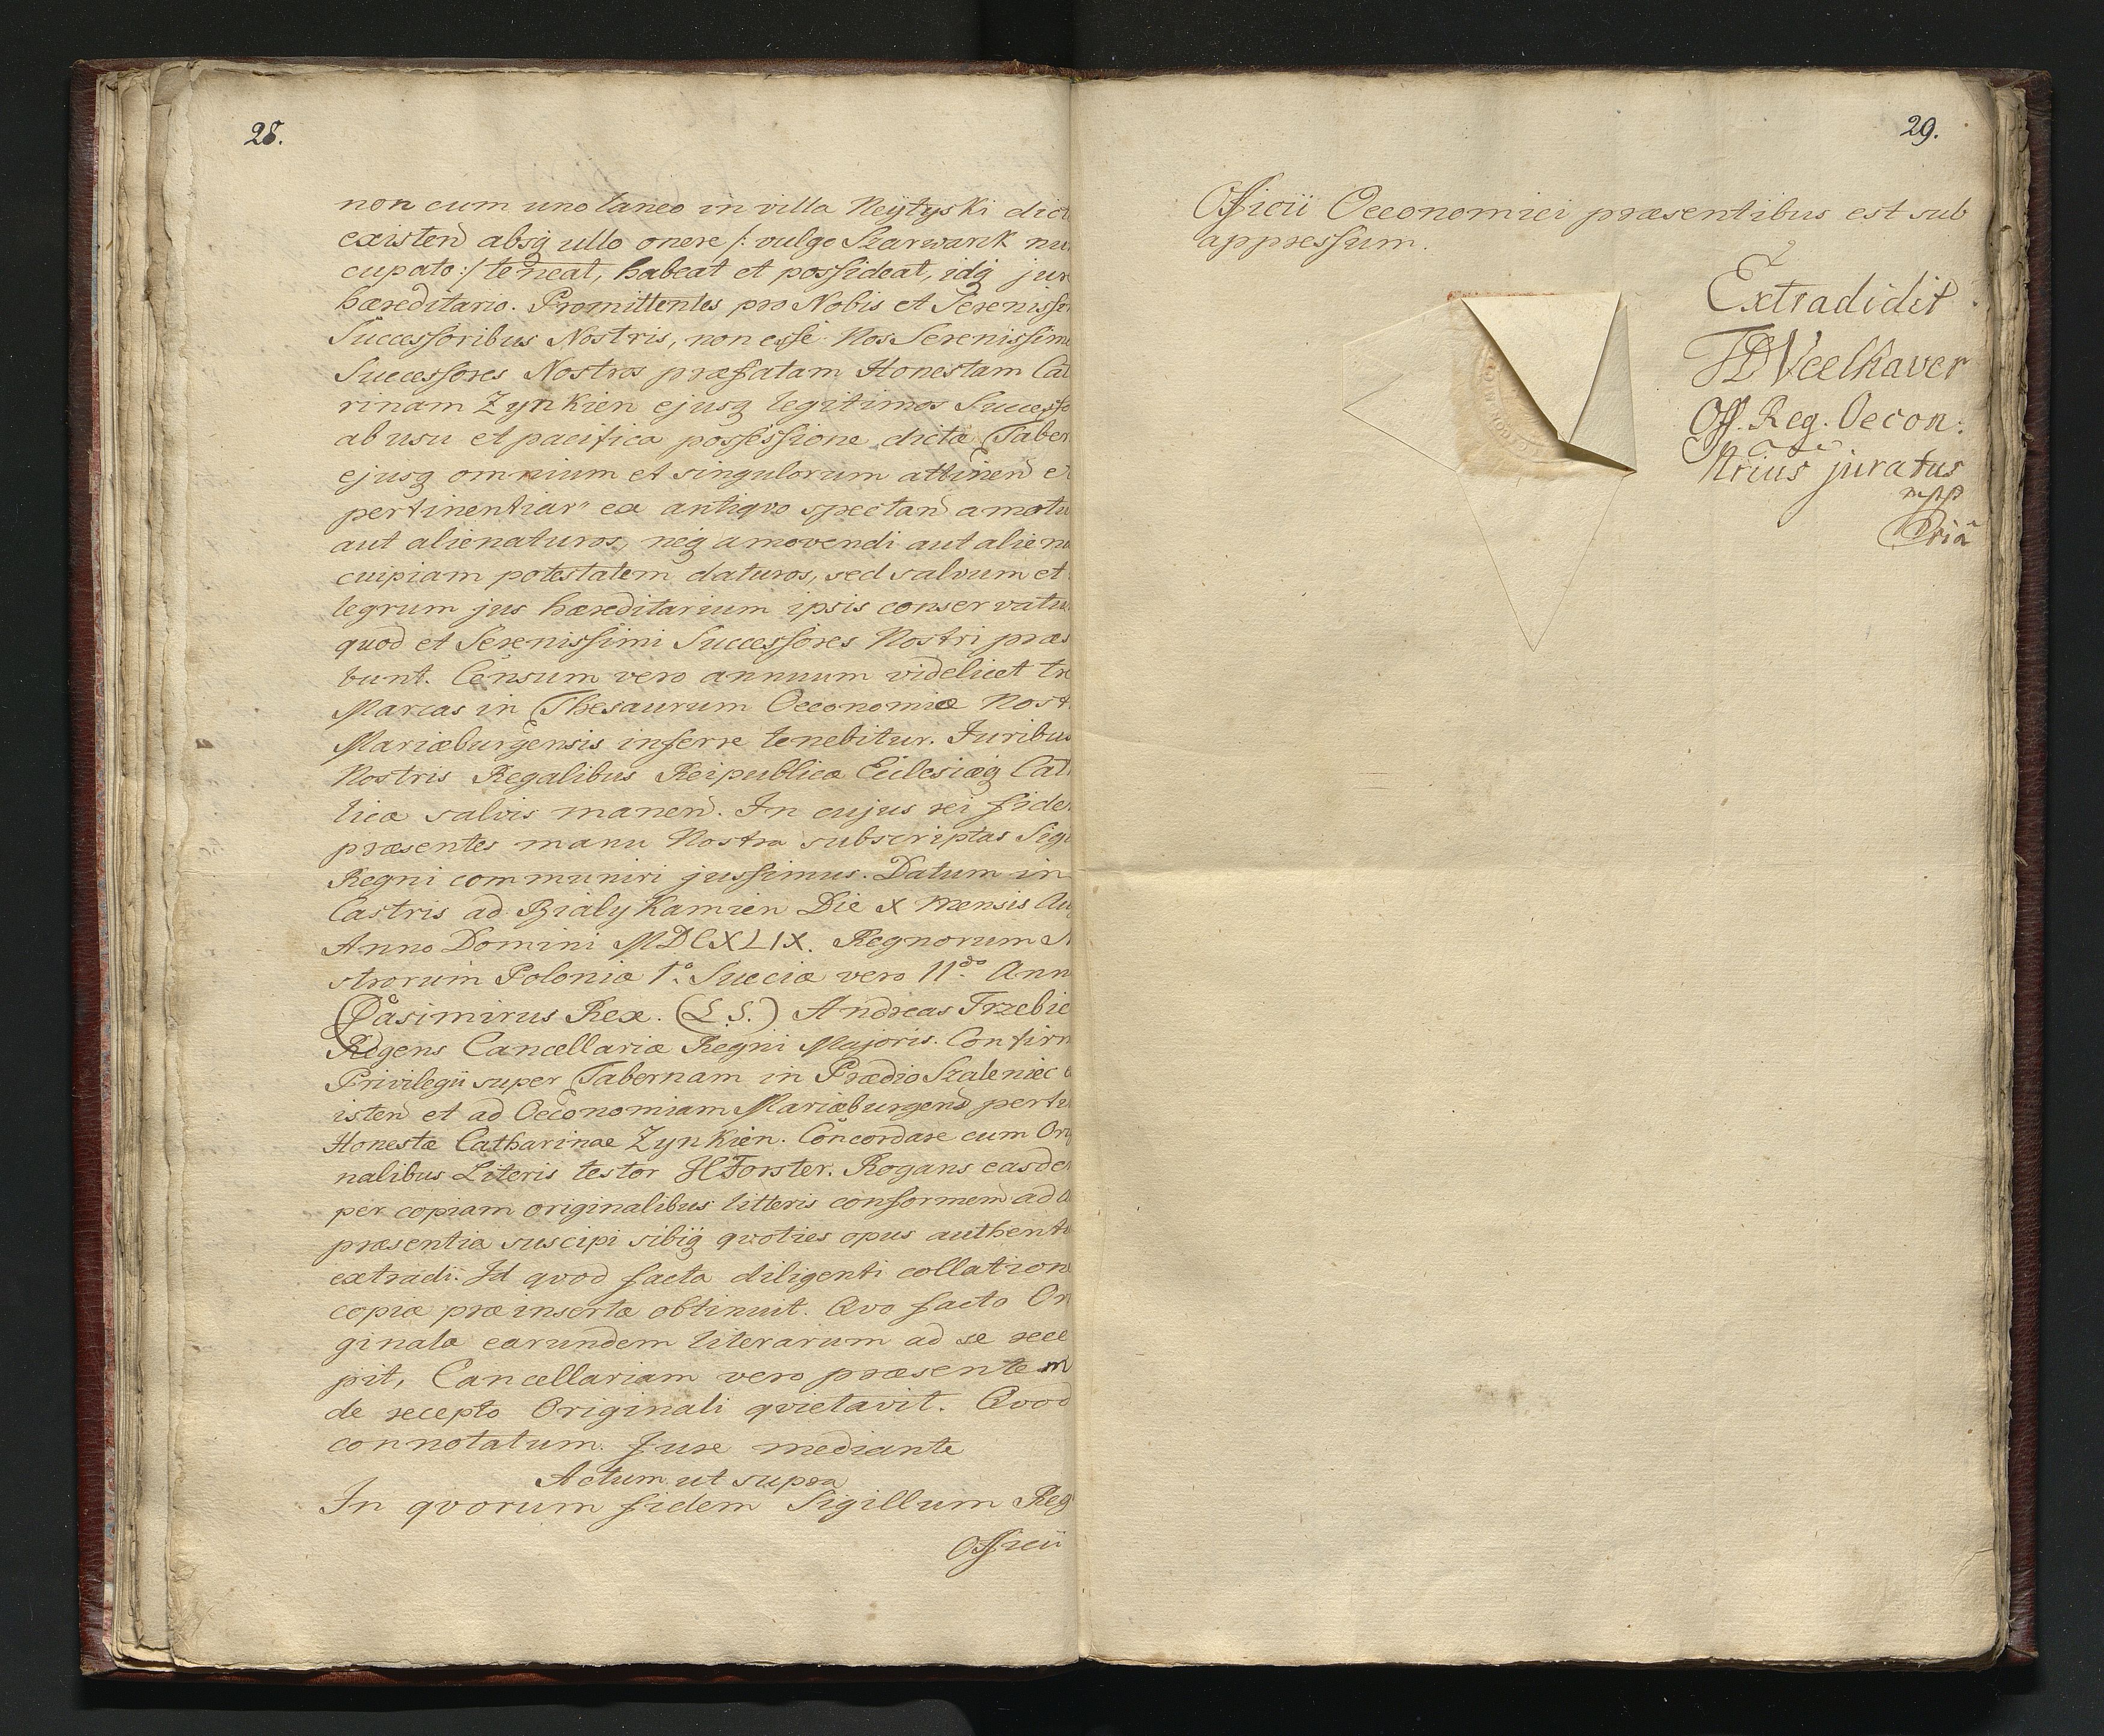 28.
non cum uno laneo in villa Neytyski dict
existend absq ullo onere /: vulgo Szarwark nu
cupato :/ teneat, habeat et possideat, idq jur
hæreditario. Promittentes pro Nobis et Sereniss
Successoribus Nostris, non esse Nos Serenissim
Successores Nostros præfatam Honestam Cat
rinam Zynkien ejusq legitimos Successo
ab usu et pacifica possessione dictæ Taber
ejusq omnium et singulorum attinend e
pertinentiar" ex antiqvo spectand amotu
aut alienaturos, neq amovendi aut aliena
cuipiam potestatem daturos, sed salvum et
legrum jus hæreditarium ipsis conservatu
quod et Serenissimi Successores Nostri præs
bunt. Censum vero annuum videlicet tr
Marcas in Thesaurum Oeconomiæ Nost
Mariæburgensis inferre tenebitur. Juribus
Nostris Regalibus Reipublicæ Ecclesiæq Cat
licæ salvis manend. In cujus rei fide
præsentes manu Nostra subscriptas Sigi
Regni communiri jussimus. Datum in
Castris ad Bialy Kamien Die X Mensis Au
Anno Domini MDCXLIX. Regnorum
strorum Poloniæ 1º Sueciæ vero 11do Ann
Casimirus Rex. (L.S.) Andreas Trzebic
Regens Cancellariæ Regni Majoris. Confirm
Privilegii super Tabernam in Prædio Szaleniec
isten et ad Oeconomiam Mariæburgens perti
Honestæ Catharinae Zynkien. Concordare cum Ori
nalibus Literis testor HForster. Rogans easde
per copiam originalibus litteris conformem ad
præsentia suscipi sibiq qvoties opus authenti
extradi. Id qvod facta diligenti collatione
copiæ præinsertæ obtinuit. Qvo facto Ori
ginale earundem literarum ad se rece
pit, Cancellariam vero præsentem
de recepto Originali qvietavit. Qvod
connotatum. Jure mediante
Actum ut supra
In qvorum fidem Sigillum Reg
Officii
29.
Officii Oeconomici præsentibus est sub
appressum.
Extradidit
Off. Reg. Oecon:
Nrius juratus
mpp